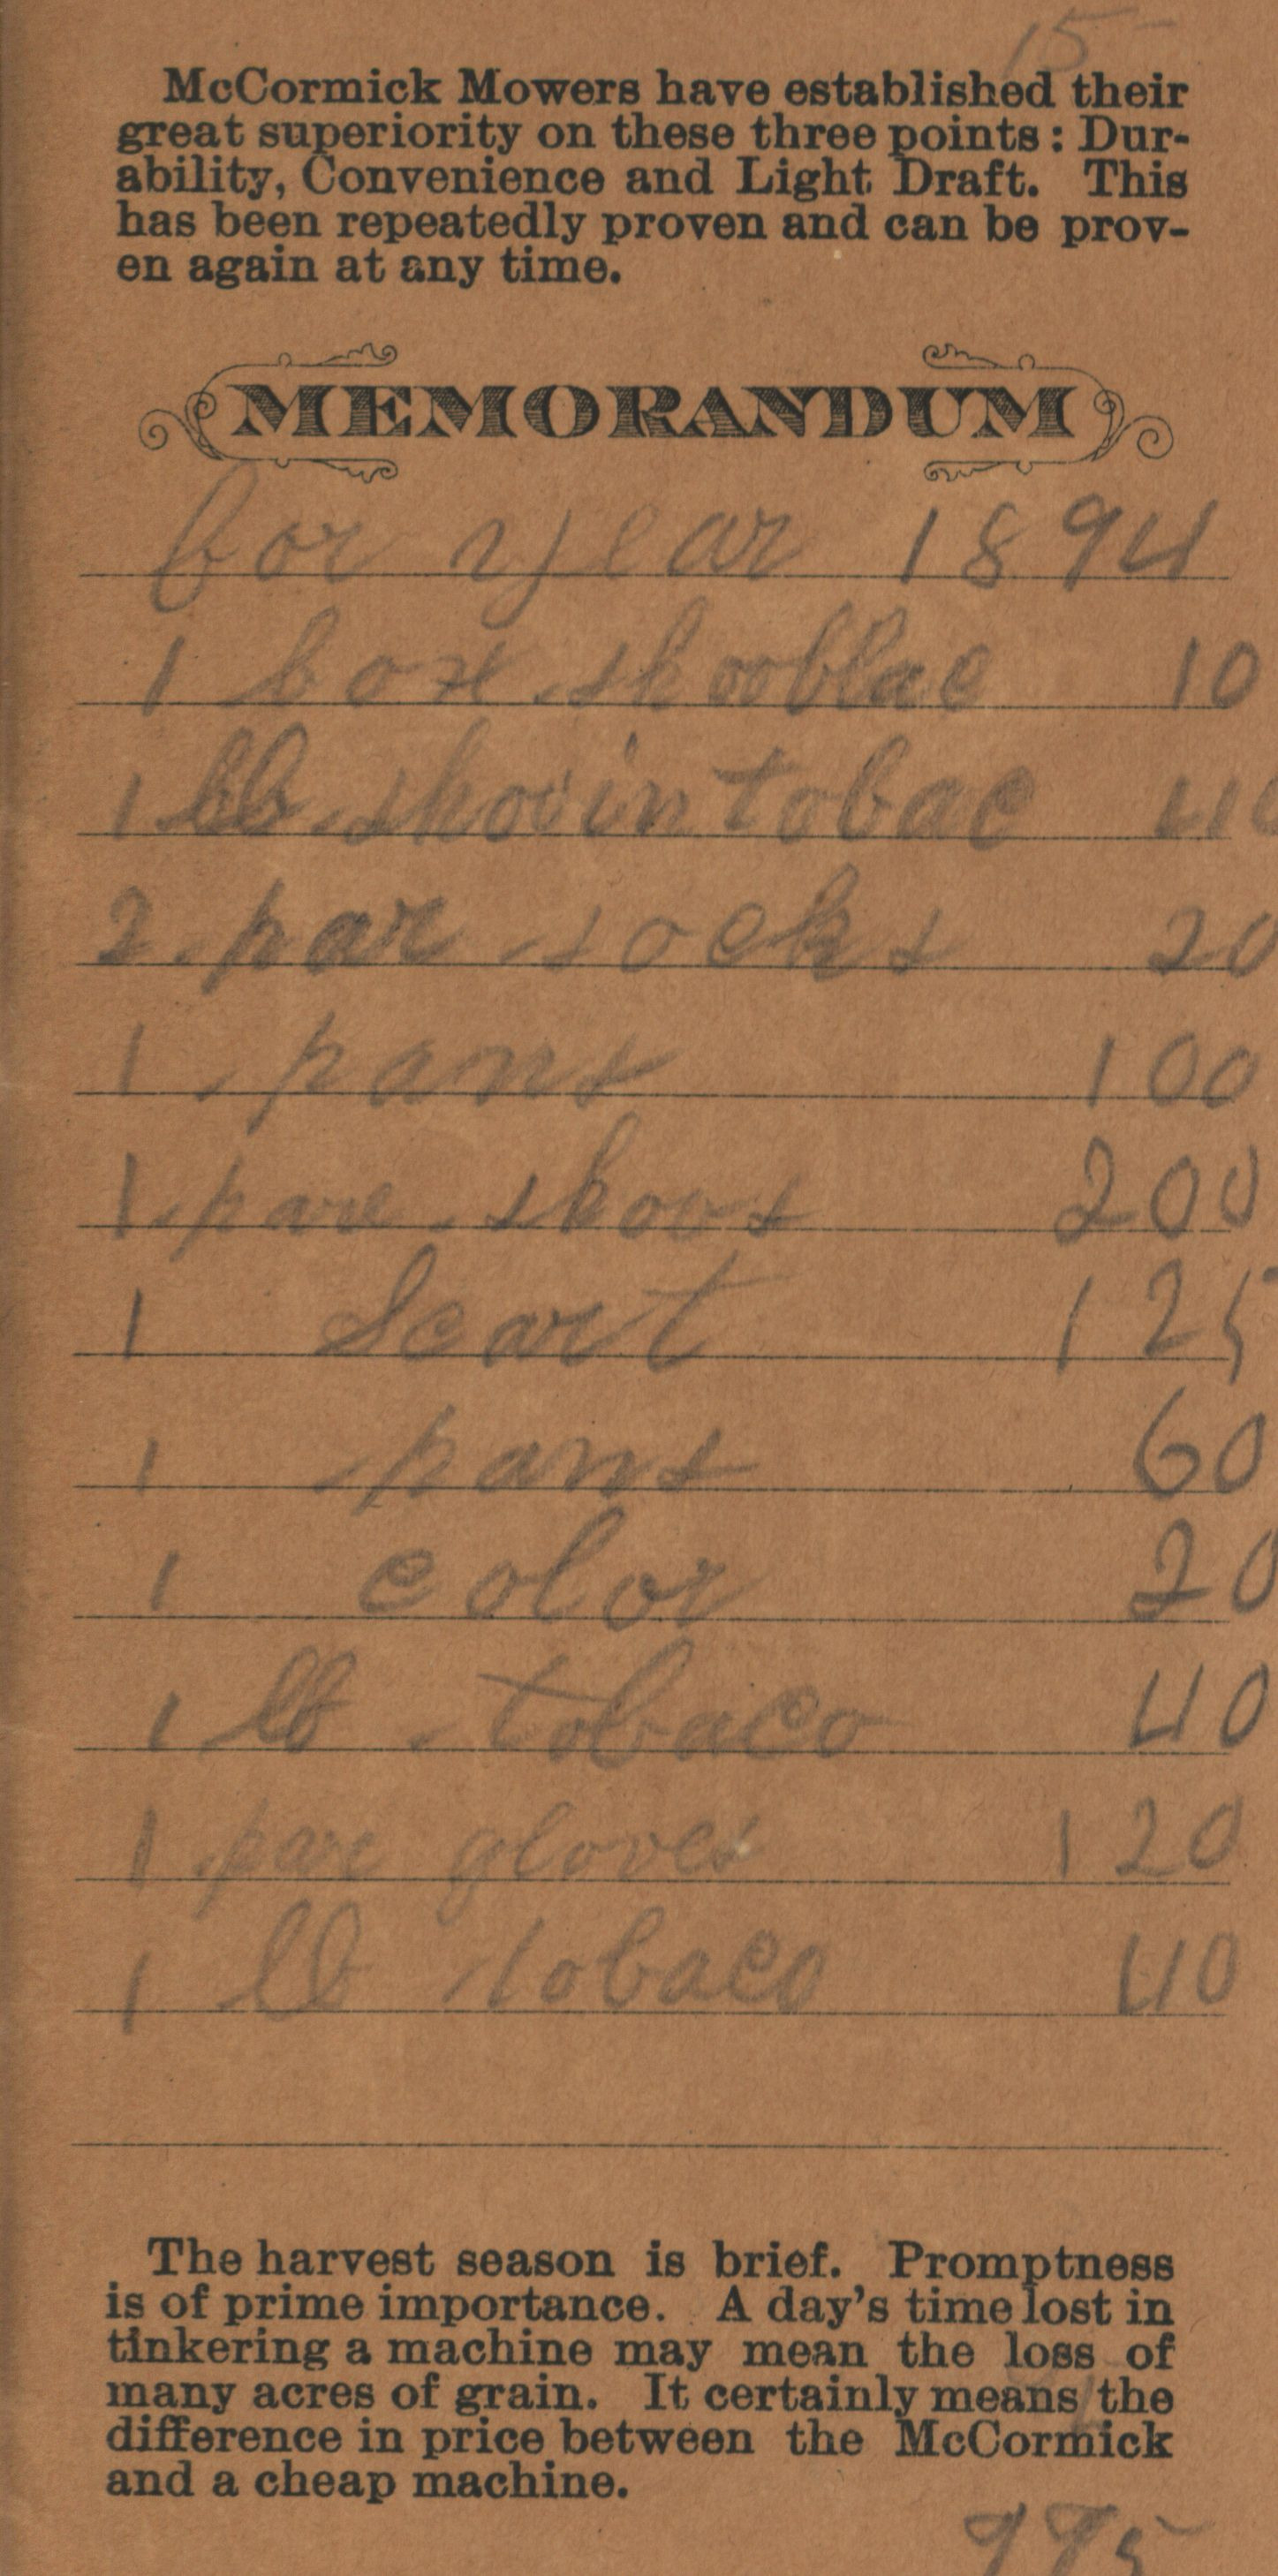 15
McCormick Mowers have established their
great superiority on these three points: Dur-
ability, Convenience and Light Draft. This
has been repeatedly proven and can be prov-
en again at any time.
MEMORANDUM
for year 1894
1 box shooblac 10
1 lb tobac 40
2 par socks 20
1 pans 100
1 pare shoos 200
1 Scart 125
1 pans 60
1 color 20
1 lb tobaco 40
1 par gloves 120
1 lb tobaco 40
The harvest season is brief. Promptness
is of prime importance. A day's time lost in
tinkering a machine may mean the loss of
many acres of grain. It certainly means the
difference in price between the McCormick
and a cheap machine.